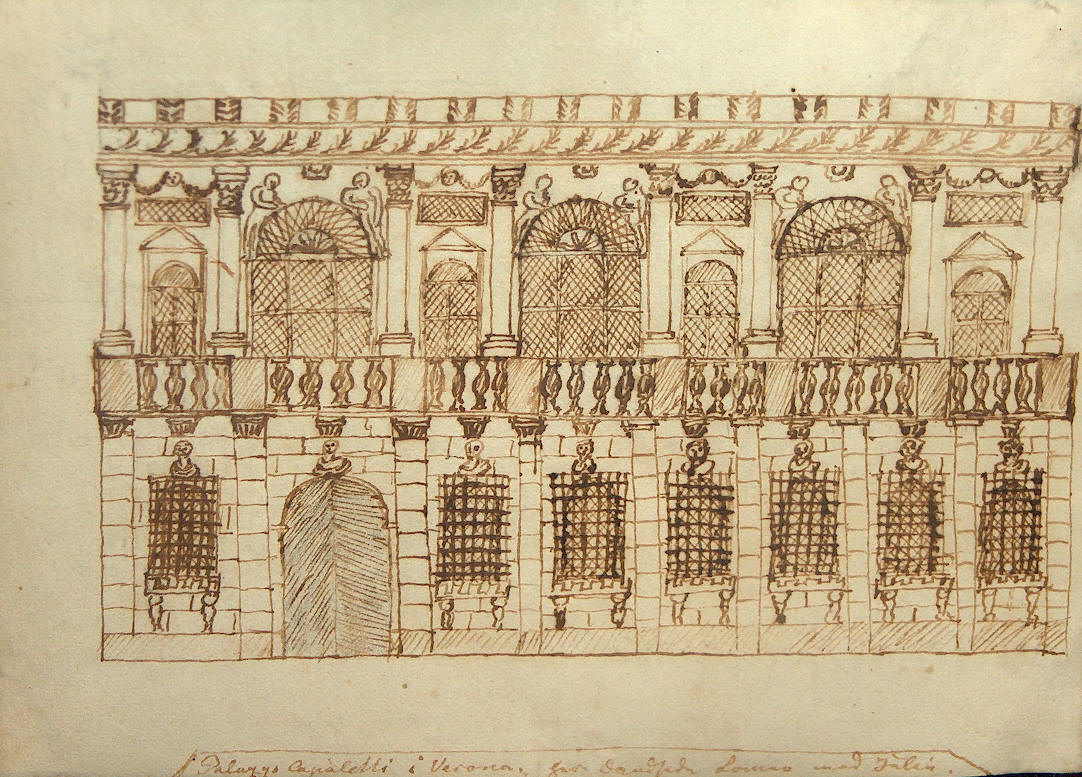 Palazzo Capuletti i Verona, her Dandsede Romeo med Julie